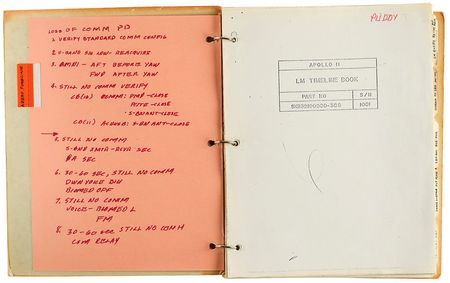 LOSS OF COMM PD
1. VERIFY STANDARD COMM CONFIG
2. V-BAND SIG LOW- REACQUIRE
3. OMNI - AFT BEFORE YAW
FWD AFTER YAW
4. STILL NO COMM VERIFY
CB(16) COMM: PMP-CLOSE
S-BN ANT-CLOSE
CB(11) S-BN ANT-CLOSE
5. STILL NO COMM
S-BND XMTR-RCVR SEC
PA SEC
6. 30-60 SEC, STILL NO COMM
DWN VOICE
BIOMED OFF
7. STILL NO COMM
VOICE-
FM
8. 30-60 SEC STILL NO COMM
COM RELAY
PUDDY
APOLLO 11
LM TIMELINE BOOK
PART NO S/N
1001